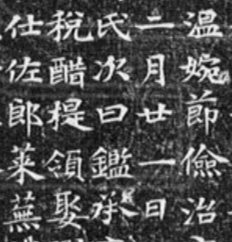 温婉節儉治
二月廿一日
氏次曰鑑承
税醋提領娶
仕佐郎萊蕪